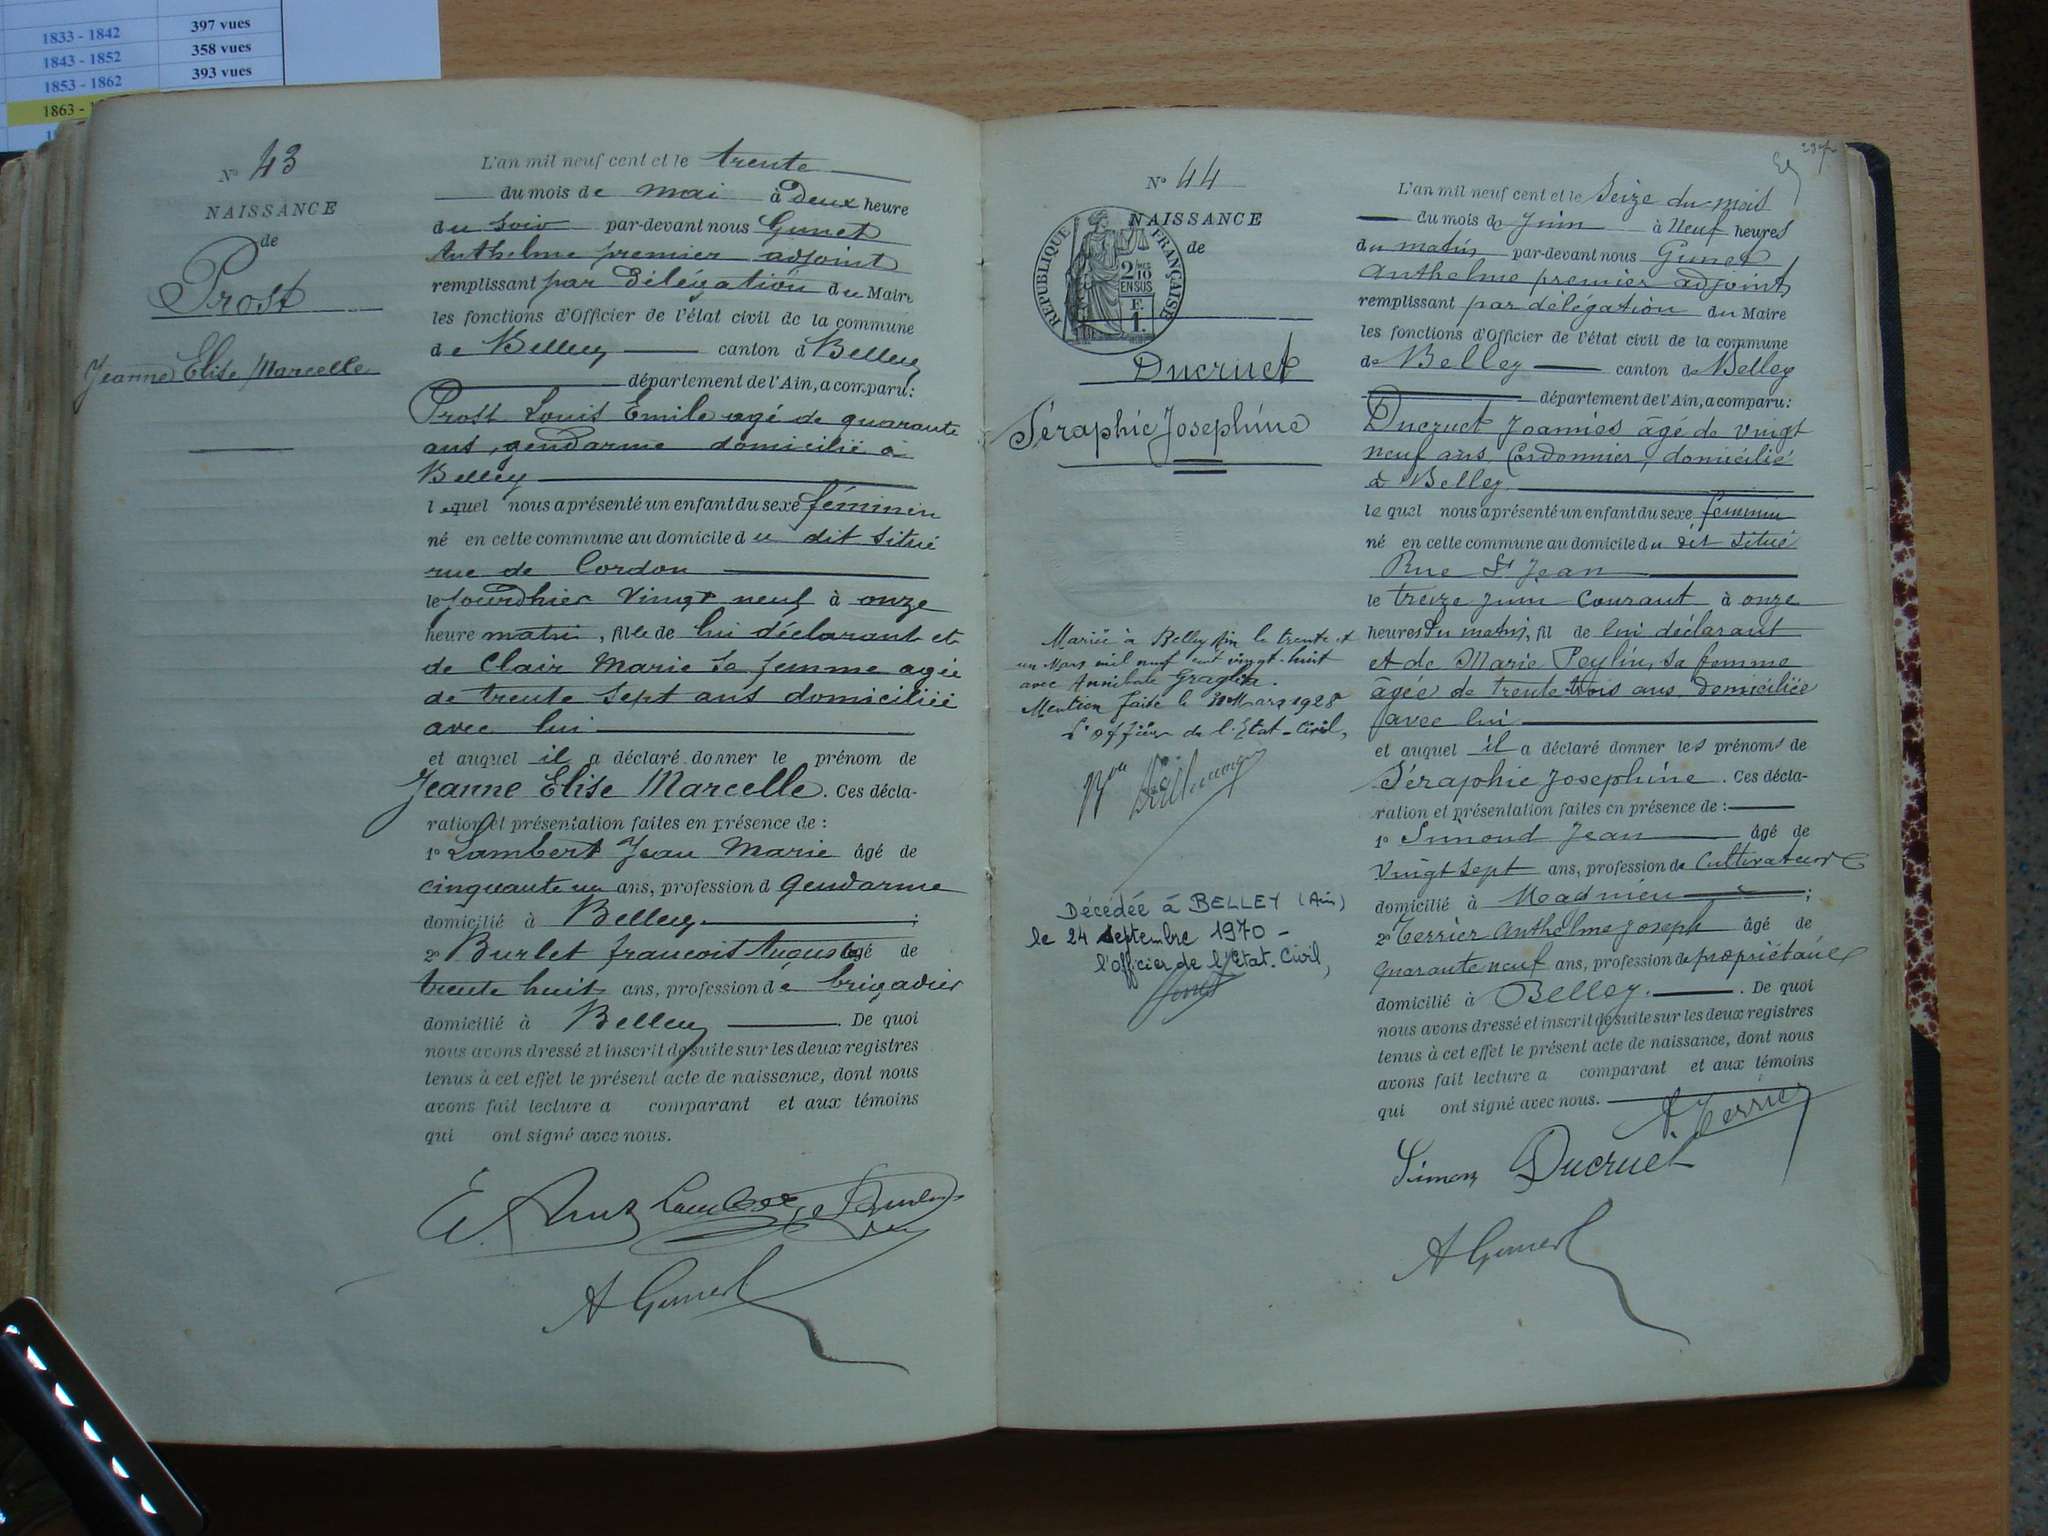 397 vues
1833 - 1842
358 vues
1843 - 1852
393 vues
1853 - 1862
1863 - 1
N° 43
NAISSANCE
de
Prost
Jeanne Elise Marcelle
L'an mil neuf cent et le trente
du mois de mai à deux heure
du soir par-devant nous Gunet
Anthelme premier adjoint
remplissant par délégation du Maire
les fonctions d'Officier de l'état civil de la commune
de Belley canton d Belley
département de l'Ain, a comparu:
Prost Louis Emile agé de quarante
ans, gendarme domicilié à
Belley
lequel nous a présenté un enfant du sexe féminin
né en cette commune au domicile du dit situé
rue de Cordon
le jourdhier vingt neuf à onze
heure matin, fille de lui déclarant et
de Clair Marie sa femme agée
de trente sept ans domiciliée
avec lui
et auquel il a déclaré donner le prénom de
Jeanne Elise Marcelle. Ces décla-
ration et présentation faites en présence de :
1° Lambert Jean Marie âgé de
cinquante un ans, profession d gendarme
domicilié à Belley ;
2° Burlet francois Auguste âgé de
trente huit ans, profession de brigadier
domicilié à Belley. De quoi
nous avons dressé et inscrit de suite sur les deux registres
tenus à cet effet le présent acte de naissance, dont nous
avons fait lecture a comparant et aux témoins
qui ont signé avec nous.
A Gunet
237
N° 44
NAISSANCE
de
RÉPUBLIQUE FRANÇAISE
2/10
EN SUS
F.
1.
Ducruet
Séraphie Josephine
Mariée à Belley Ain le trente et
un Mars mil neuf cent vingt-huit
avec Annibale Graglia.
Mention faite le Mars 1928
L'officier de l'Etat-Civil,
Décédée à BELLEY (Ain)
le 24 septembre 1970 -
l'officier de l'Etat-Civil,
L'an mil neuf cent et le Seize du mois
du mois de Juin à Neuf heures
du matin par-devant nous Gunet
Anthelme premier adjoint
remplissant par délégation du Maire
les fonctions d'Officier de l'état civil de la commune
de Belley canton de Belley
département de l'Ain, a comparu:
Ducruet Joannies âgé de vingt
neuf ans, Cordonnier, domicilié
à Belley.
le quel nous a présenté un enfant du sexe feminin
né en cette commune au domicile du dit situé
Rue St Jean
le treize juin courant à onze
heures du matin, fil de lui déclarant
et de Marie Peylin, sa femme
âgée de trente trois ans domiciliée
avec lui
et auquel il a déclaré donner les prénoms de
Séraphie Josephine. Ces décla-
ration et présentation faites en présence de :
1° Simond Jean âgé de
vingt sept ans, profession de cultivateur
domicilié à ;
2° Terrier Anthelme Joseph âgé de
quarante neuf ans, profession de propriétaire
domicilié à Belley. De quoi
nous avons dressé et inscrit de suite sur les deux registres
tenus à cet effet le présent acte de naissance, dont nous
avons fait lecture a comparant et aux témoins
qui ont signé avec nous.
A. Terrier
Simon Ducruet
A Gunet